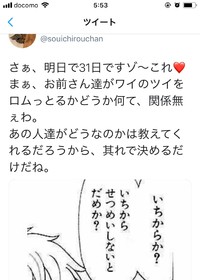 docomo
5:53
ツイート
@souichirouchan
さぁ、明日で31日ですゾ～これ❤️
まぁ、お前さん達がワイのツイを
ロムっとるかどうか何て、関係無
ぇわ。
あの人達がどうなのかは教えてく
れるだろうから、其れで決めるだ
けだね。
いちからか?
いちから
せつめいしないと
だめか?